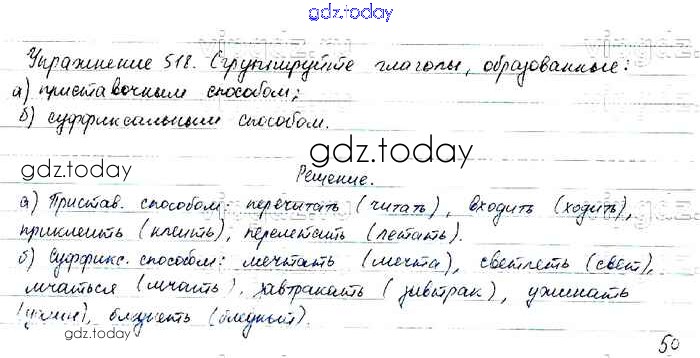 gdz.today
Упражнение 518. Сгруппируйте глаголы, образованные:
а) приставочным способом;
б) суффиксальным способом.
gdz.today
gdz.today
Решение.
а) Пристав. способом: перечитать (читать), входить (ходить),
приклеить (клеить), перелетать (летать).
б) Суффикс. способом: мечтать (мечта), светлеть (свет),
мчаться (мчать), завтракать (завтрак), ужинать
(ужин), бледнеть (бледный).
gdz.today
50